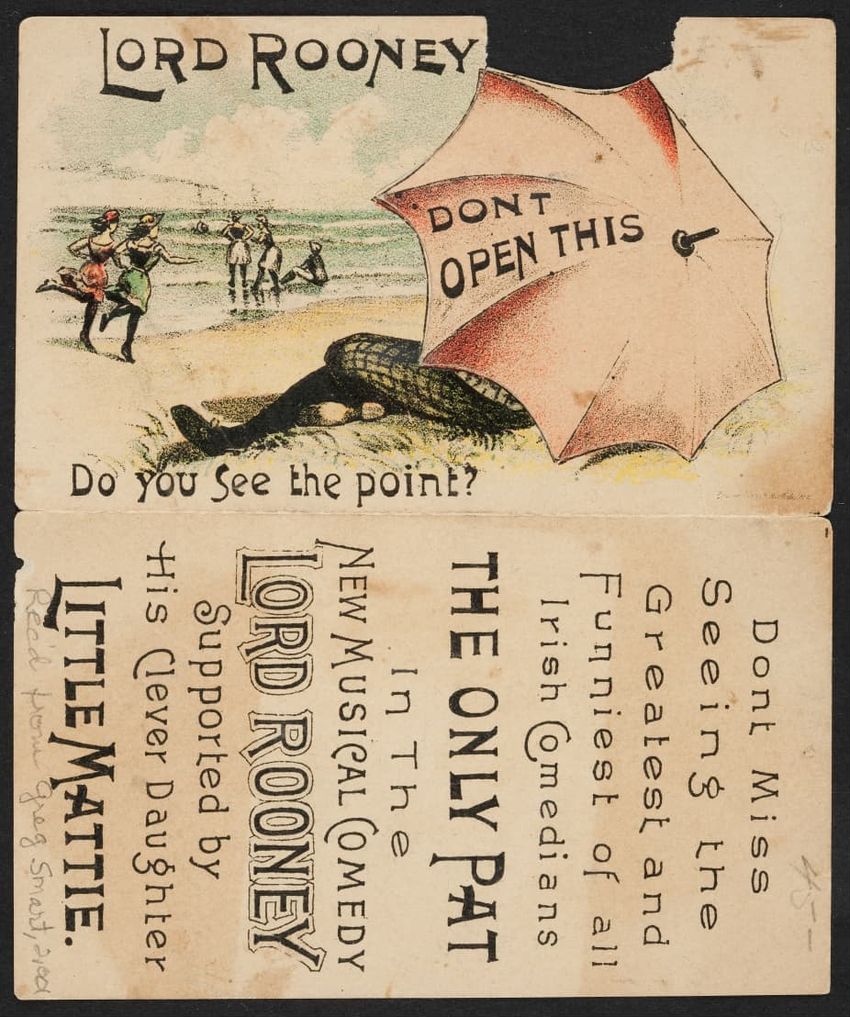 LORD ROONEY
DONT
OPEN THIS
Do you See the point?
Dont Miss
Seeing the
Greatest and
Funniest of all
Irish Comedians
THE ONLY PAT
In The
NEW MUSICAL COMEDY
LORD ROONEY
Supported by
His Clever Daughter
LITTLE MATTIE.
Rec'd from Greg Smart, 2002
45-